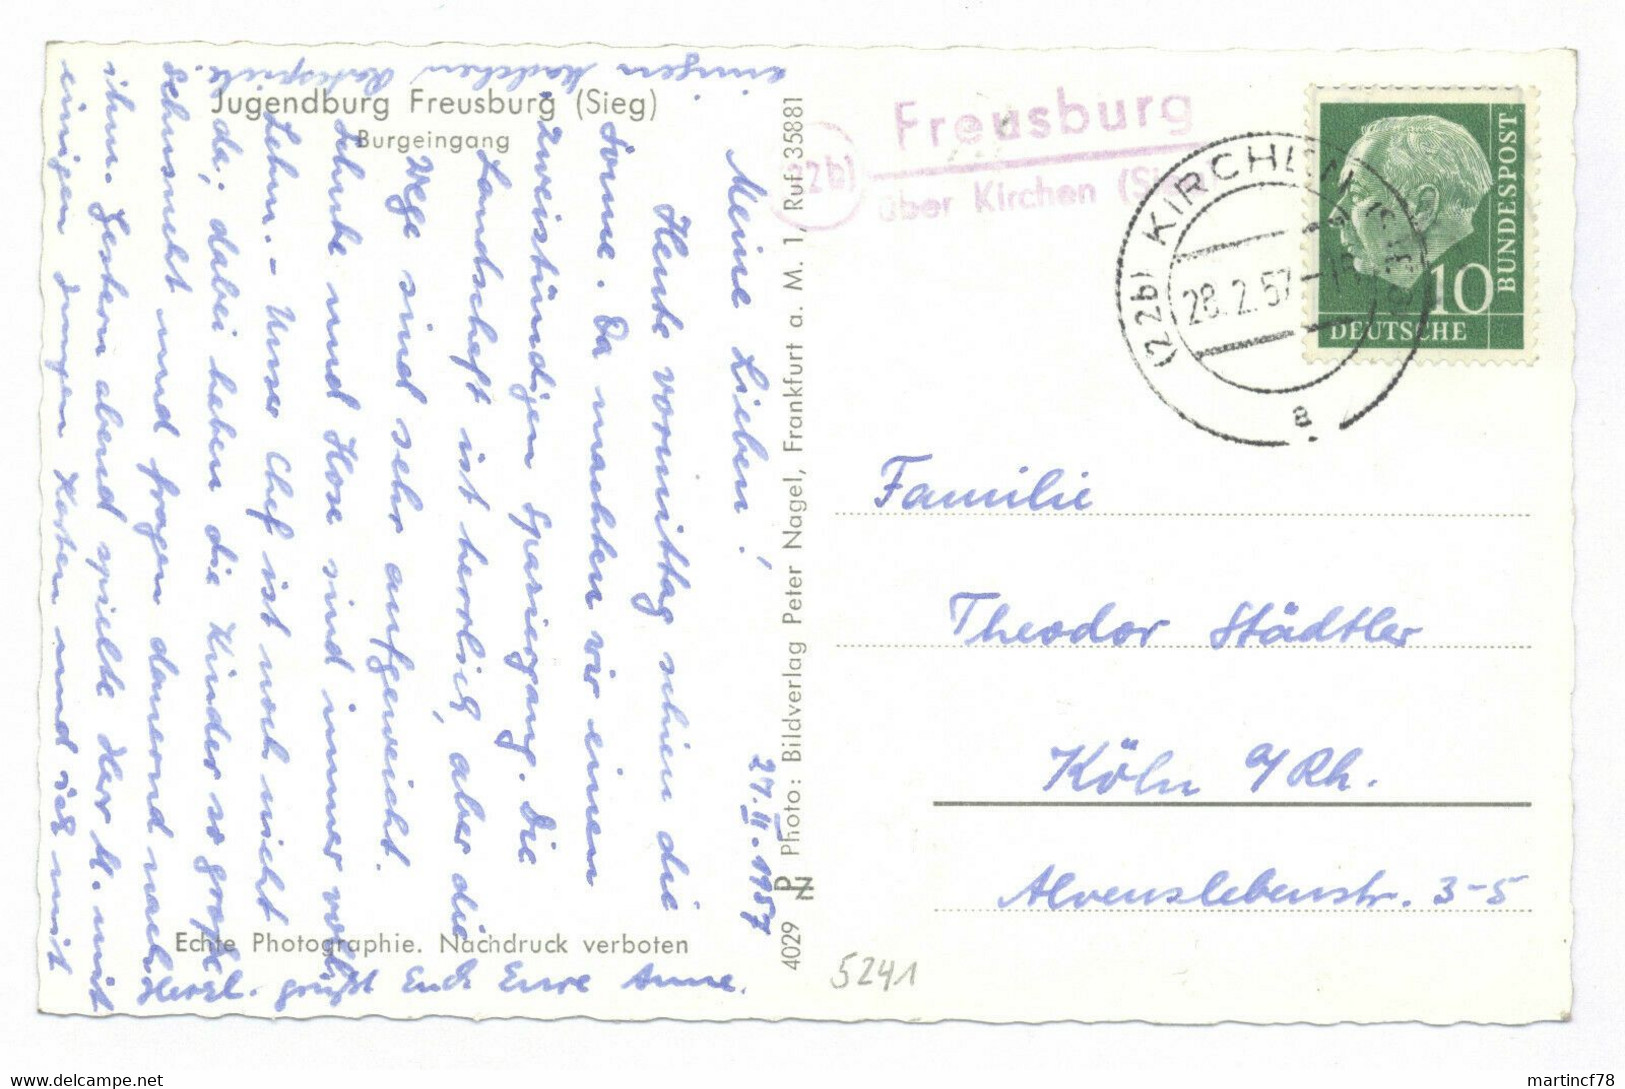 Jugendburg Freusburg (Sieg)
Burgeingang
27.II.1957
Meine Lieben!
Heute vormittag schien die
Sonne. Da machten wir einen
zweistündigen Spaziergang. Die
Landschaft ist herrlich, aber die
Wege sind sehr aufgeweicht.
Schuhe und Hose sind immer voll
Lehm. - Unser Chef ist noch nicht
da; dabei haben die Kinder so große
Sehnsucht und fragen dauernd nach
ihm. Gestern abend spielte Herr M. mit
einigen Jungen Karten und ich mit
einigen Mädchen Ratespiele.
Herzl. grüßt Euch Eure Anne.
Echte Photographie. Nachdruck verboten
4029 Photo: Bildverlag Peter Nagel, Frankfurt a. M. 1, Ruf: 35881
22b)
Freusburg
über Kirchen (Sieg)
(22b) KIRCHEN (SIEG)
28.2.57
a
10
DEUTSCHE
BUNDESPOST
Familie
Theodor Städtler
Köln a/Rh.
Alvenslebenstr. 3-5
5241
martincf78